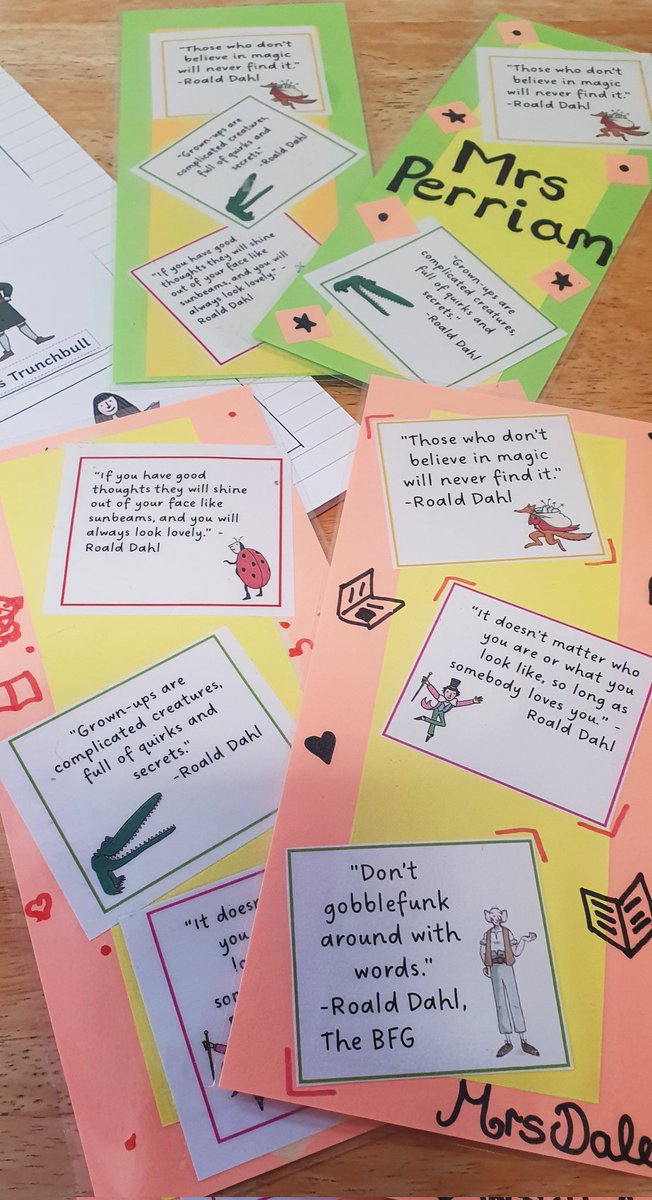 "Those who don't
believe in magic
will never find it."
-Roald Dahl
"Grown-ups are
complicated creatures,
full of quirks and
secrets."
-Roald Dahl
"If you have good
thoughts they will shine
out of your face like
sunbeams, and you will
always look lovely." -
Roald Dahl
"Those who don't
believe in magic
will never find it."
-Roald Dahl
Mrs
Perriam
"Grown-ups are
complicated creatures,
full of quirks and
secrets."
-Roald Dahl
Trunchbull
"If you have good
thoughts they will shine
out of your face like
sunbeams, and you will
always look lovely." -
Roald Dahl
"Grown-ups are
complicated creatures,
full of quirks and
secrets."
-Roald Dahl
"It
you
"Those who don't
believe in magic
will never find it."
-Roald Dahl
"It doesn't matter who
you are or what you
look like, so long as
somebody loves you." -
Roald Dahl
"Don't
gobblefunk
around with
words."
-Roald Dahl,
The BFG
Mrs Dale